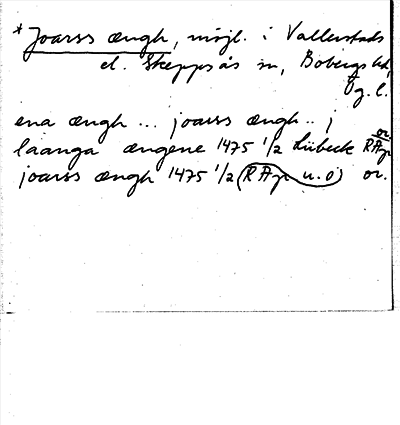 * Joarss ængh, möjl. i Vallerstads
el. Skeppsås sn, Bobergs hd,
Ög. l.
ena ængh ... joarss ængh .. j
laanga ængene 1475 1/2 Lübeck RAp or.
joarss ængh 1475 1/2 (RAp u. o) or.